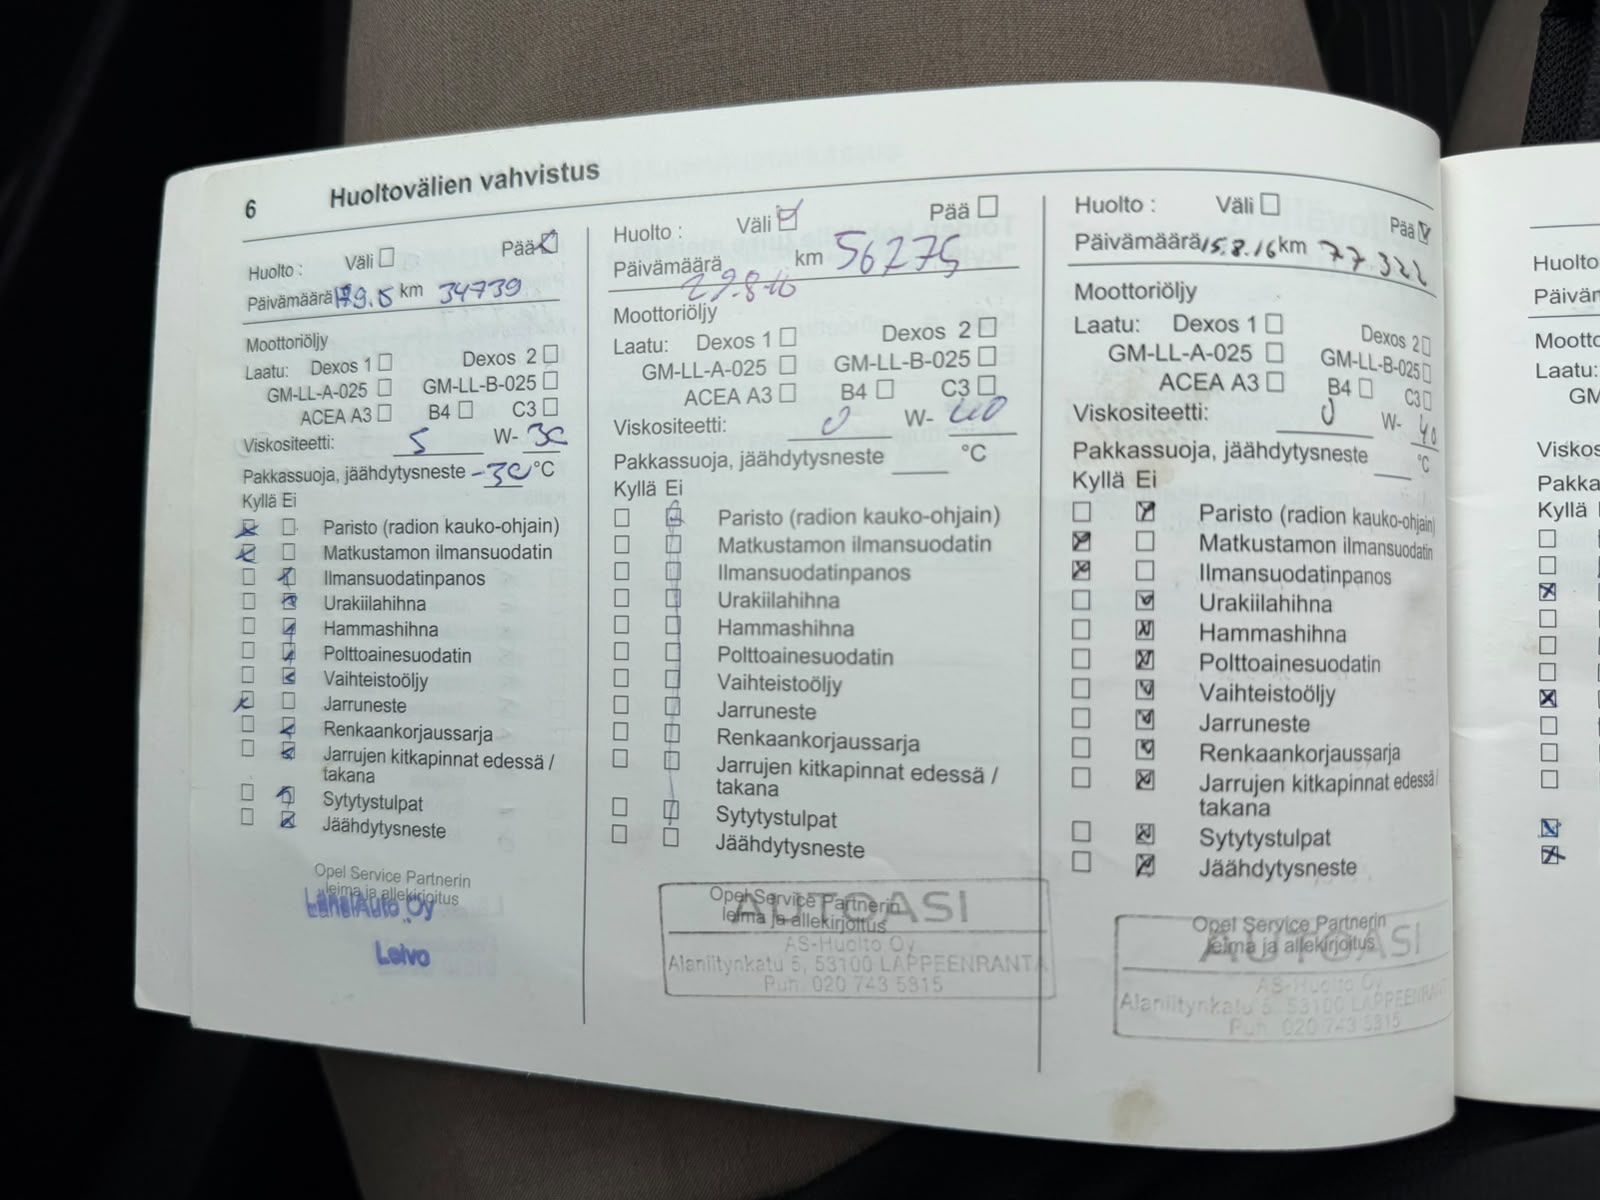 6 Huoltovälien vahvistus
Huolto : Väli Pää
Päivämäärä km 34739
Moottoriöljy
Laatu: Dexos 1 Dexos 2
GM-LL-A-025 GM-LL-B-025
ACEA A3 B4 C3
Viskositeetti: 5 W- 30
Pakkassuoja, jäähdytysneste -30 °C
Kyllä Ei
Paristo (radion kauko-ohjain)
Matkustamon ilmansuodatin
Ilmansuodatinpanos
Urakiilahihna
Hammashihna
Polttoainesuodatin
Vaihteistoöljy
Jarruneste
Renkaankorjaussarja
Jarrujen kitkapinnat edessä /
takana
Sytytystulpat
Jäähdytysneste
Opel Service Partnerin
leima ja allekirjoitus
LänsiAuto Oy
Leivo
Huolto : Väli Pää
Päivämäärä km 56275
Moottoriöljy
Laatu: Dexos 1 Dexos 2
GM-LL-A-025 GM-LL-B-025
ACEA A3 B4 C3
Viskositeetti: 0 W- 40
Pakkassuoja, jäähdytysneste °C
Kyllä Ei
Paristo (radion kauko-ohjain)
Matkustamon ilmansuodatin
Ilmansuodatinpanos
Urakiilahihna
Hammashihna
Polttoainesuodatin
Vaihteistoöljy
Jarruneste
Renkaankorjaussarja
Jarrujen kitkapinnat edessä /
takana
Sytytystulpat
Jäähdytysneste
Opel Service Partnerin
leima ja allekirjoitus
AUTOASI
AS-Huolto Oy
Alaniitynkatu 5, 53100 LAPPEENRANTA
Puh. 020 743 5815
Huolto : Väli Pää
Päivämäärä 15.8.16 km 77322
Moottoriöljy
Laatu: Dexos 1 Dexos 2
GM-LL-A-025 GM-LL-B-025
ACEA A3 B4 C3
Viskositeetti: 0 W- 40
Pakkassuoja, jäähdytysneste °C
Kyllä Ei
Paristo (radion kauko-ohjain)
Matkustamon ilmansuodatin
Ilmansuodatinpanos
Urakiilahihna
Hammashihna
Polttoainesuodatin
Vaihteistoöljy
Jarruneste
Renkaankorjaussarja
Jarrujen kitkapinnat edessä /
takana
Sytytystulpat
Jäähdytysneste
Opel Service Partnerin
leima ja allekirjoitus
AUTOASI
AS-Huolto Oy
Alaniitynkatu 5, 53100 LAPPEENRANTA
Puh. 020 743 5815
Huolto
Päiväm
Mootto
Laatu:
GM
Viskos
Pakka
Kyllä